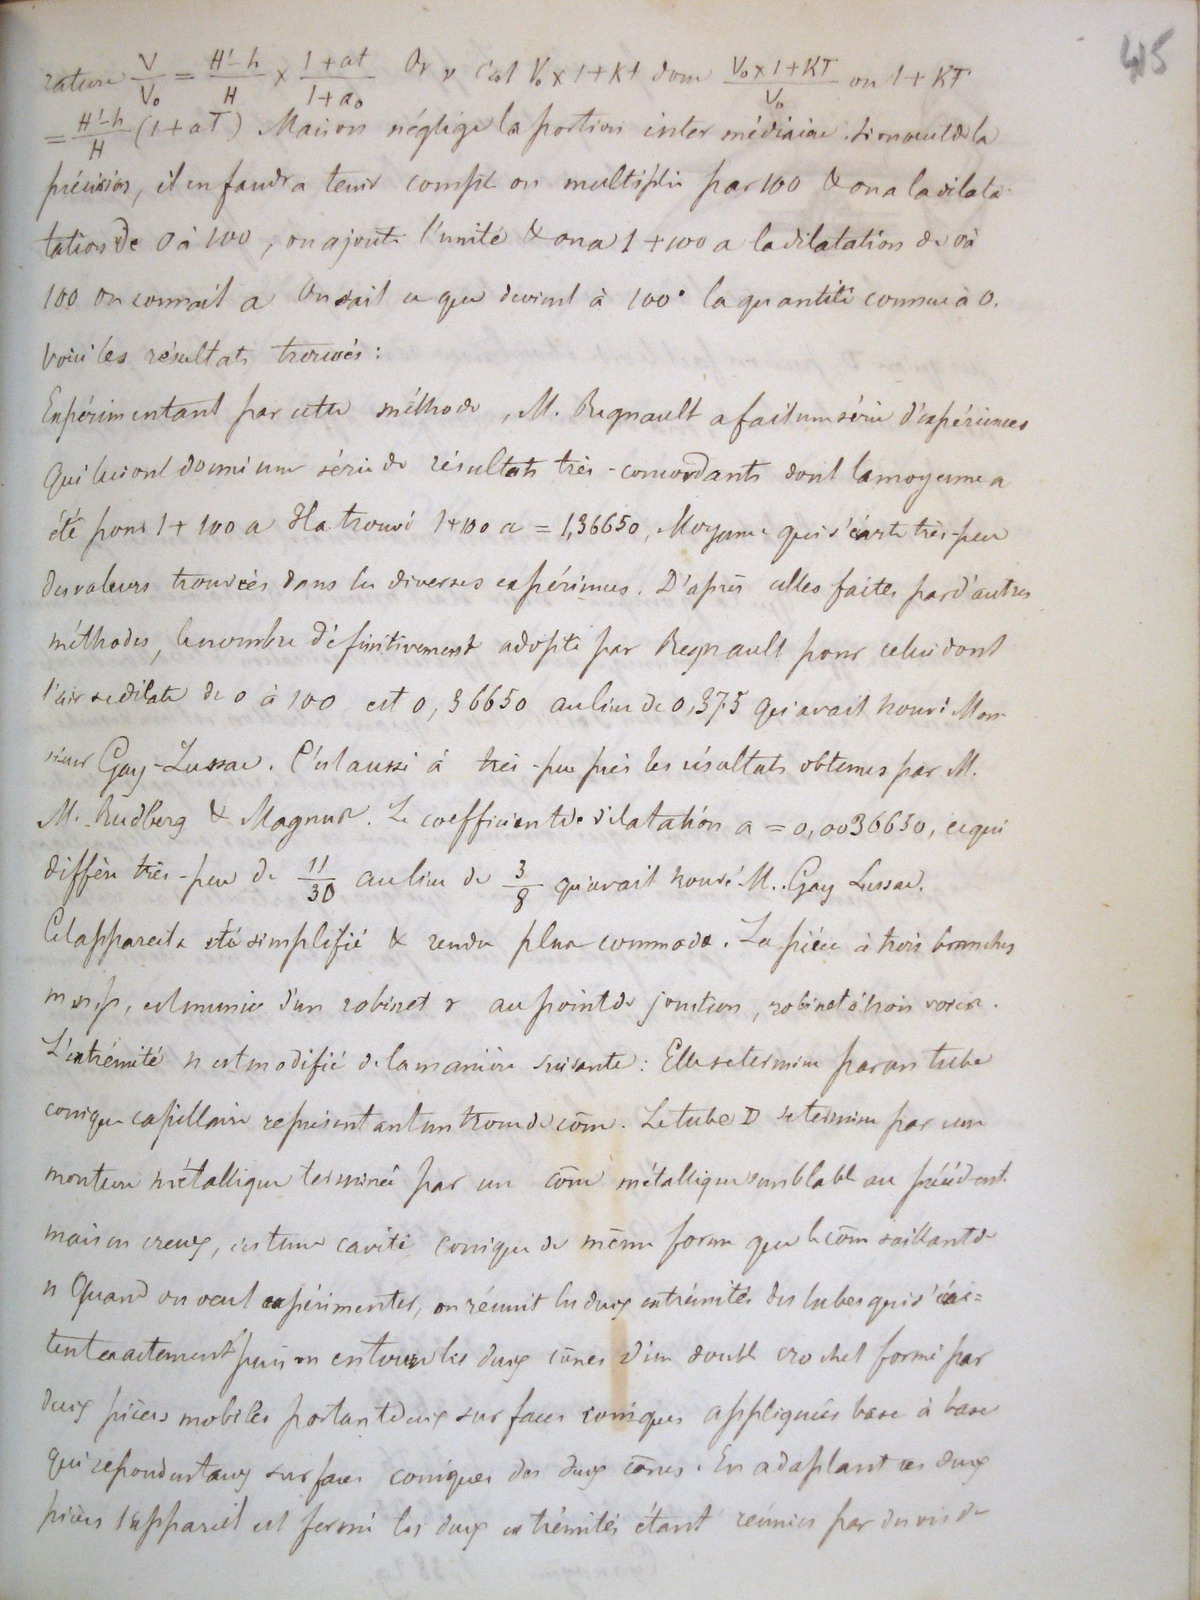 45
rature V/V₀ = H'-h/H × 1+at/1+a₀ Or v c'est V₀ × 1+Kt donc V₀×1+KT/V₀ ou 1+KT
= H'-h/H (1+aT) Mais on néglige la portion intermédiaire. Si on veut de la
précision, il en faudra tenir compte on multiplie par 100 & on a la dilata
tation de 0 à 100, on ajoute l'unité & on a 1+100 a la dilatation de 0 à
100 On connait a On sait ce que devient à 100° la quantité connue à 0.
Voici les résultats trouvés :
Expérimentant par cette méthode, M. Regnault a fait une série d'expériences
Qui lui ont donné une série de résultats très-concordants dont la moyenne a
été pour 1+100 a Il a trouvé 1+100 a = 1,36650, Moyenne qui s'écarte très-peu
des valeurs trouvées dans les diverses expériences. D'après celles faites par d'autres
méthodes, le nombre définitivement adopté par Regnault pour celui dont
l'air se dilate de 0 à 100 est 0,36650 au lieu de 0,375 qu'avait trouvé Mon
sieur Gay-Lussac. C'est aussi à très-peu près les résultats obtenus par M.
M. Rudberg & Magnus. Le coefficient de dilatation a = 0,0036650, ce qui
diffère très-peu de 11/30 au lieu de 3/8 qu'avait trouvé M. Gay Lussac.
Cet appareil a été simplifié & rendu plus commode. La pièce à trois branches
m n p, est munie d'un robinet r au point de jonction, robinet à trois voies.
L'extrémité n est modifié de la manière suivante : Elle se termine par un tube
conique capillaire représentant un tronc de cône. Le tube D se termine par une
monture métallique terminée par un cône métallique semblable au précédent
mais en creux, c'est une cavité conique de même forme que le cône saillant de
n Quand on veut expérimenter, on réunit les deux extrémités des tubes qui s'
tent exactement puis on entoure les deux cônes d'un double crochet formé par
deux pièces mobiles portant deux surfaces coniques appliquées base à base
qui répondent aux surfaces coniques des deux cônes. En adaptant ces deux
pièces l'appareil est fermé les deux extrémités étant réunies par des vis de